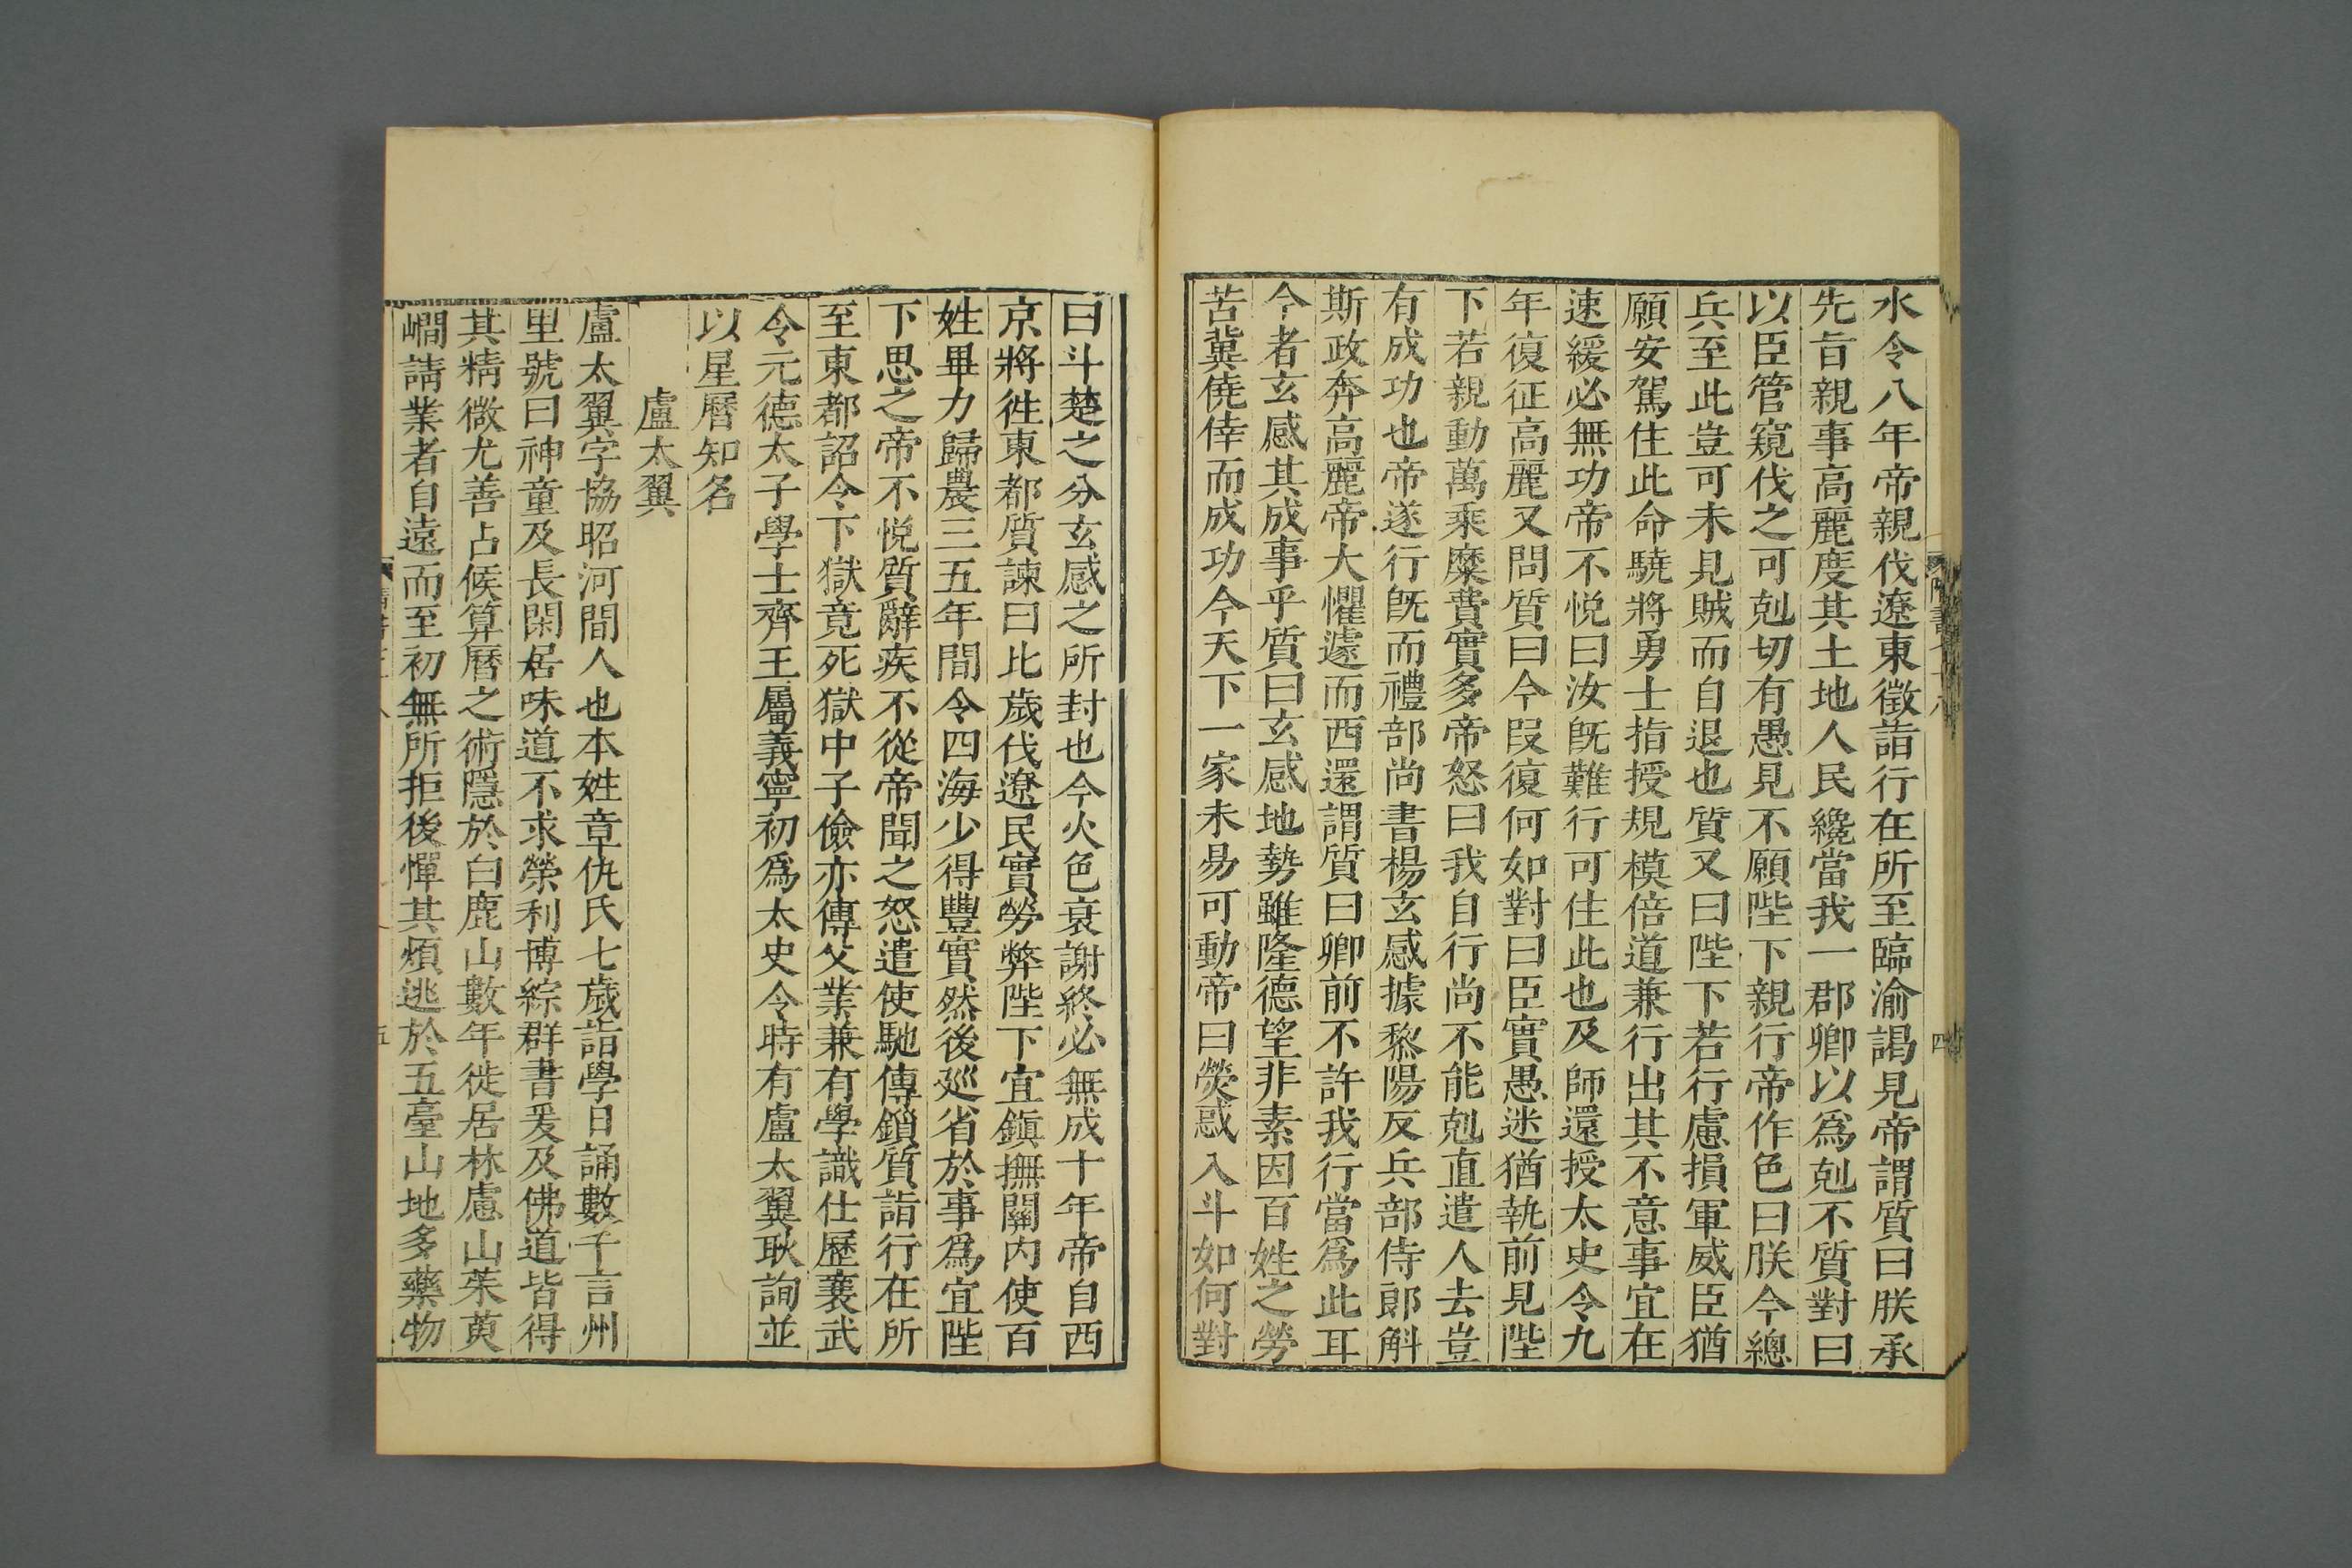 水令八年帝親伐遼東徵詣行在所至臨渝謁見帝謂質曰朕承
先旨親事高麗度其土地人民纔當我一郡卿以爲剋不質對曰
以臣管窺伐之可剋切有愚見不願陛下親行帝作色曰朕今總
兵至此豈可未見賊而自退也質又曰陛下若行慮損軍威臣猶
願安駕住此命驍將勇士指授規模倍道兼行出其不意事宜在
速緩必無功帝不悅曰汝旣難行可住此也及師還授太史令九
年復征高麗又問質曰今叚復何如對曰臣實愚迷猶執前見陛
下若親動萬乘糜費實多帝怒曰我自行尚不能剋直遣人去豈
有成功也帝遂行旣而禮部尚書楊玄感據黎陽反兵部侍郎斛
斯政奔高麗帝大懼遽而西還謂質曰卿前不許我行當爲此耳
今者玄感其成事乎質曰玄感地勢雖隆德望非素因百姓之勞
苦冀僥倖而成功今天下一家未易可動帝曰熒惑入斗如何對
曰斗楚之分玄感之所封也今火色衰謝終必無成十年帝自西
京將徃東都質諫曰比歲伐遼民實勞弊陛下宜鎮撫關內使百
姓畢力歸農三五年間令四海少得豐實然後廵省於事爲宜陛
下思之帝不悅質辭疾不從帝聞之怒遣使馳傳鎖質詣行在所
至東都詔令下獄竟死獄中子儉亦傳父業兼有學識仕歷襄武
令元德太子學士齊王屬義寧初爲太史令時有盧太翼耿詢並
以星曆知名
盧太翼
盧太翼字協昭河間人也本姓章仇氏七歲詣學日誦數千言州
里號曰神童及長閑居味道不求榮利博綜群書爰及佛道皆得
其精微尤善占候算曆之術隱於白鹿山數年徙居林慮山茱萸
㵎請業者自遠而至初無所拒後憚其煩逃於五臺山地多藥物